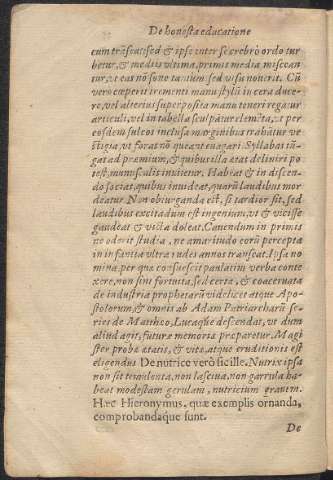 De honesta educatione
cum trãseat: sed & ipse inter se crebrò ordo tur
betur, & mediis vltima, primis media miscan-
tur, vt eas nõ sono tantum, sed visu nouerit. Cũ
vero cœperit trementi manu stylũ in cera duce-
re, vel alterius superposita manu teneri regãtur
articuli, vel in tabella sculpãtur elemẽta, vt per
eosdem sulcos inclusa marginibus trahãtur ve-
stigia, vt foras nõ queant euagari. Syllabas iũ-
gat ad præmium, & quibus illa ætas deliniri po
test, munusculis inuitetur. Habeat & in discen-
do socias, quibus inuideat, quarũ laudibus mor
deatur. Non obiurganda est, si tardior sit, sed
laudibus excitãdum est ingenium, vt & vicisse
gaudeat & victa doleat. Cauendum in primis
ne oderit studia, ne amaritudo eorũ percepta
in infantia vltra rudes annos transeat. Ipsa no
mina, per quæ consuescit paulatim verba conte
xere, non sint fortuita, sed certa, & coaceruata
de industria, prophetarũ videlicet atque Apo-
stolorum, & omnis ab Adam Patriarcharũ se-
ries de Mattheo, Lucaque descendat, vt dum
aliud agit, futuræ memoriæ præparetur. Magi
ster probæ ætatis, & vitæ, atque eruditionis est
eligendus De nutrice verò sic ille. Nutrix ipsa
non sit temulenta, non lasciua, non garrula ha-
beat modestam gerulam, nutricium grauem.
Hæc Hieronymus, quæ exemplis ornanda,
comprobandaque sunt.
De